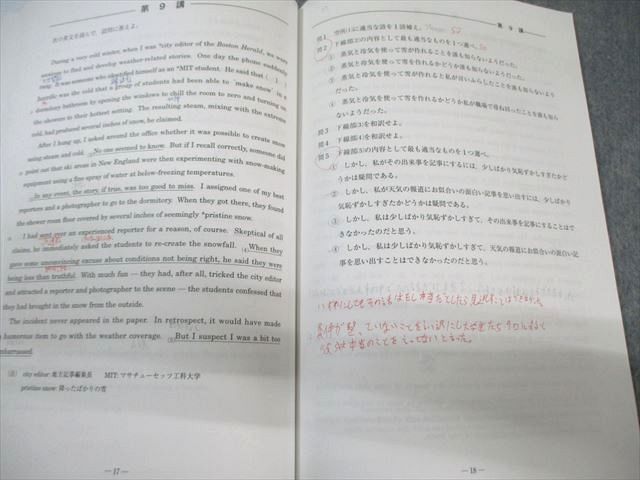 第 9 講
次の英文を読んで、設問に答えよ。
During a very cold winter, when I was *city editor of the Boston Herald, we were
anxious to find and develop weather-related stories. One day the phone suddenly
rang. It was someone who identified himself as an *MIT student. He said that ( 1 )
horrific was the cold that a group of students had been able to make snow in a
dormitory bathroom by opening the windows to chill the room to zero and turning on
the showers to their hottest setting. The resulting steam, mixing with the extreme
cold, had produced several inches of snow, he claimed.
After I hung up, I asked around the office whether it was possible to create snow
using steam and cold. No one seemed to know. But if I recall correctly, someone did
point out that ski areas in New England were then experimenting with snow-making
equipment using a fine spray of water at below-freezing temperatures.
In any event, the story, if true, was too good to miss. I assigned one of my best
reporters and a photographer to go to the dormitory. When they got there, they found
the shower room floor covered by several inches of seemingly *pristine snow.
I had sent over an experienced reporter for a reason, of course. Skeptical of all
claims, he immediately asked the students to re-create the snowfall. (4)When they
gave some unconvincing excuse about conditions not being right, he said they were
being less than truthful. With much fun — they had, after all, tricked the city editor
and attracted a reporter and photographer to the scene — the students confessed that
they had brought in the snow from the outside.
The incident never appeared in the paper. In retrospect, it would have made
a humorous item to go with the weather coverage. (5)But I suspect I was a bit too
embarrassed.
注 city editor: 地方記事編集長 MIT: マサチューセッツ工科大学
pristine snow: 降ったばかりの雪
— 17 —
第 9 講
問1 空所(1)に適当な語を1語補え。
問2 下線部(2)の内容として最も適当なものを1つ選べ。
① 蒸気と冷気を使って雪が作れることを誰も知らないようだった。
② 蒸気と冷気を使って雪を作れるかどうか誰も知らないようだった。
③ 蒸気と冷気を使って雪を作れると私が言いふらしたことを誰も知らないようだった。
④ 蒸気と冷気を使って雪を作れるかどうか私が職場で尋ね回ったことを誰も知らないようだった。
問3 下線部(3)を和訳せよ。
問4 下線部(4)を和訳せよ。
問5 下線部(5)の内容として最も適当なものを1つ選べ。
① しかし、私がその出来事を記事にするには、少しばかり気恥ずかしすぎたかどうかは疑問である。
② しかし、私が天気の報道にお似合いの面白い記事を思い出すには、少しばかり気恥ずかしすぎたかどうかは疑問である。
③ しかし、私は少しばかり気恥ずかしすぎて、その出来事を記事にすることはできなかったのだと思う。
④ しかし、私は少しばかり気恥ずかしすぎて、天気の報道にお似合いの面白い記事を思い出すことはできなかったのだと思う。
— 18 —